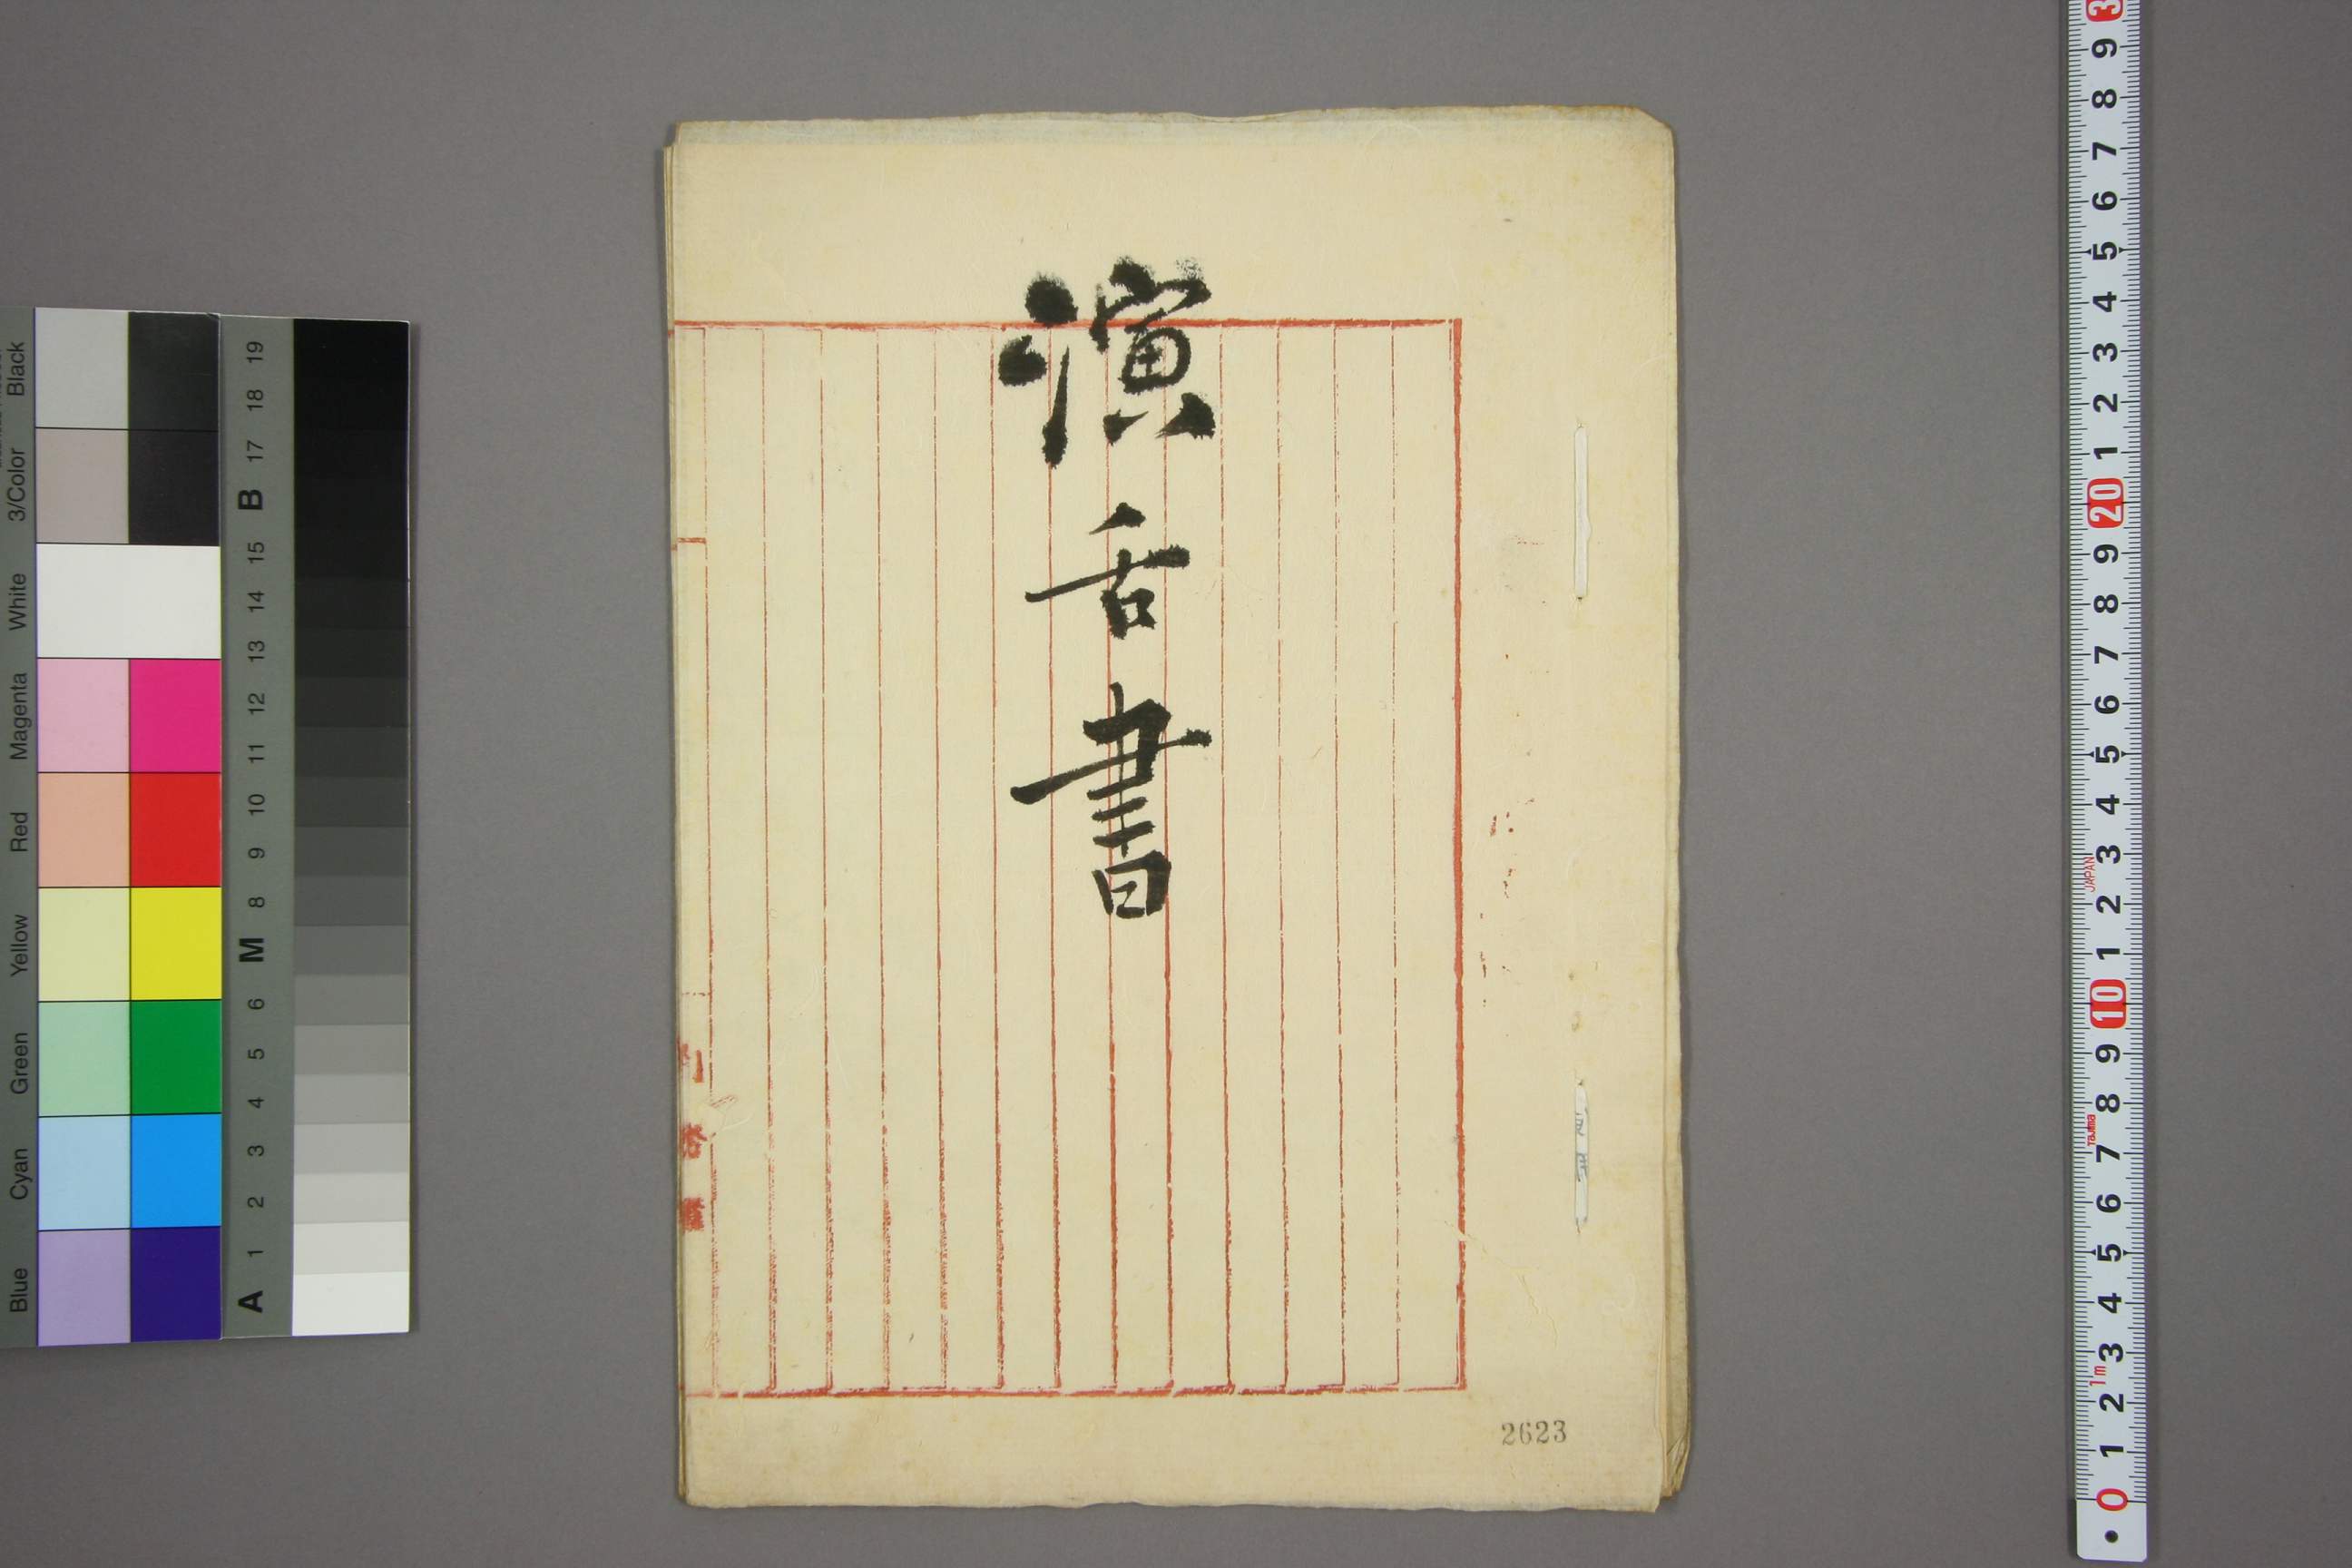 演舌書
2623
Black
3/Color
White
Magenta
Red
Yellow
Green
Cyan
Blue
19
18
17
B
15
14
13
12
11
10
9
8
M
6
5
4
3
2
1
A
3
9
8
7
6
5
4
3
2
1
20
9
8
7
6
5
4
3
2
1
10
9
8
7
6
5
4
3
2
1
0
JAPAN
Tajima
1m